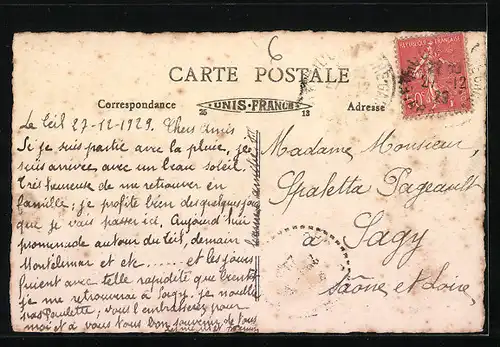 6
CARTE POSTALE
Correspondance
TUNIS-FRANCE
Adresse
25 13
REPUBLIQUE FRANÇAISE
50
Le Teil 27-12-1929. Chers amis
Si je suis partie avec la pluie, je
suis arrivée avec un beau soleil.
Très heureuse de me retrouver en
famille; je profite bien des quelques jours
que je vais passer ici. Aujourd'hui
promenade autour du Teil, demain
Montélimar et etc ..... et les jours
fuient avec telle rapidité que bientôt
je me retrouverai à Sagy. je n'oublie
pas Poulette; vous l'embrasserez pour
moi et à vous tous bon souvenir de tous
bonne amitié
Madame Monsieur
Spaletta Pageault
à Sagy
Saône et Loire